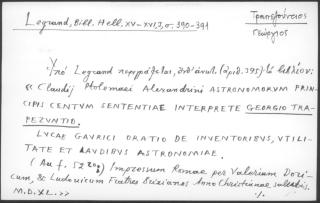 Legrand, Bibl. Hell. XV-XVI, 3, σ. 390-391
Τραπεζούντιος
Γεώργιος
Ὑπὸ Legrand περιγράφεται, (ἀριθ. 395) τὸ
"Claudij Ptolemaei Alexandrini ASTRONOMORUM PRIN
CIPIS CENTUM SENTENTIAE INTERPRETE GEORGIO TRA-
PEZUNTIO.
LUCAE GAURICI ORATIO DE INVENTORIBUS, UTILI-
TATE ET LAUDIBUS ASTRONOMIAE.
(Au f. Impressum Romae per Valerium Dori-
cum, & Ludovicum Fratres Brixianos Anno Christianae salutis.
M.D.XL.>> ./.